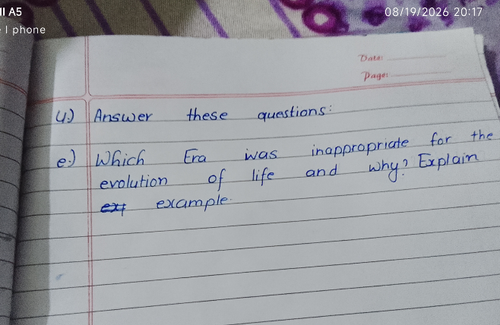 II A5
e I phone
08/19/2026 20:17
Date:
Page:
4.) Answer these questions:
e.) Which Era was inappropriate for the
evolution of life and why? Explain
example.